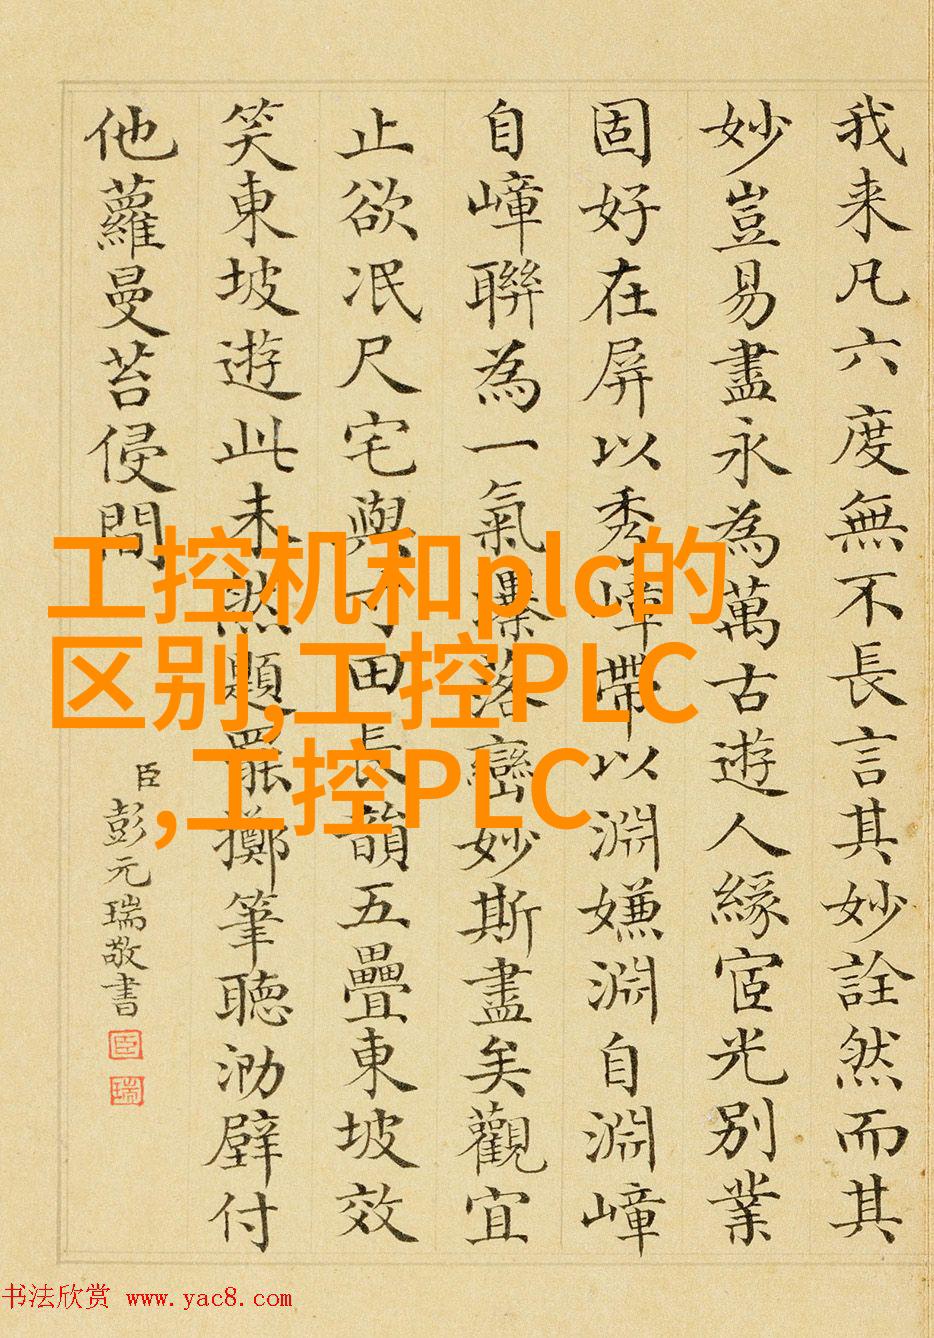 我来凡六度無不長言其妙詮然而其
妙豈易盡永為萬古遊人緣宧光別業
固好在屏以秀嶂帶以淵嫌淵自淵嶂
自嶂聯為一氣瀑落巒妙斯盡矣觀宜
止欲冺尺宅與寸田長韻五疊東坡效
笑東坡遊此未然題罷擲筆聽泐壁付
他蘿曼苔侵問
臣彭元瑞敬書
臣
瑞
工控机和plc的
区别,工控PLC
,工控PLC
书法欣赏 www.yac8.com